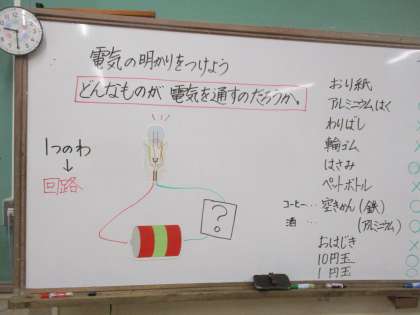 電気の明かりをつけよう
どんなものが電気を通すのだろうか。
1つのわ
↓
回路
?
おり紙
アルミニウムはく
わりばし
輪ゴム
はさみ
ペットボトル
コーヒー… 空きかん(鉄)
酒 … (アルミニウム)
おはじき
10円玉
1円玉